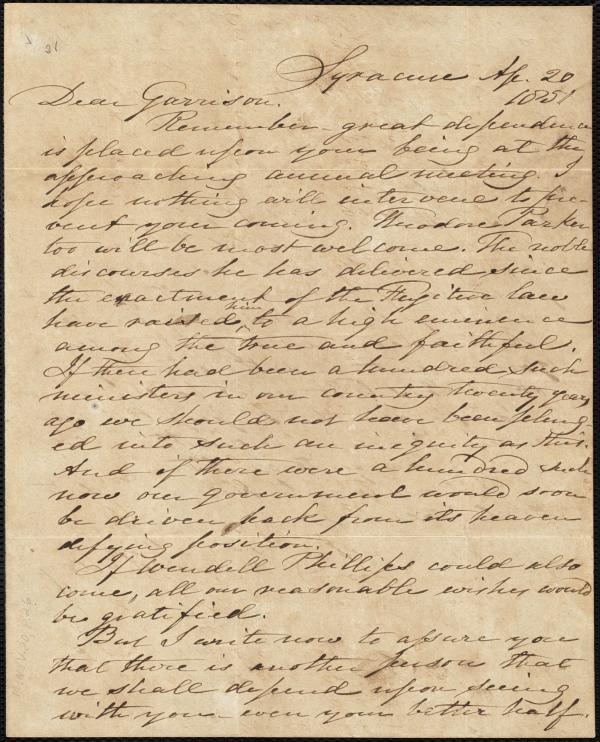 21
Syracuse Ap. 20
1851
Dear Garrison.
Remember great dependence
is placed upon your being at the
approaching annual meeting. I
hope nothing will intervene to pre-
vent your coming. Theodore Parker
too will be most welcome. The noble
discourses he has delivered since
the enactment of the Fugitive law
have raised him to a high eminence
among the true and faithful.
If there had been a hundred such
ministers in our country twenty years
ago we should not have been plung-
ed into such an iniquity as this.
And if there were a hundred such
now our government would soon
be driven back from its heaven
defying position.
If Wendell Phillips could also
come, all our reasonable wishes would
be gratified.
But I write now to assure you
that there is another person that
we shall depend upon seeing
with you – even your better half.